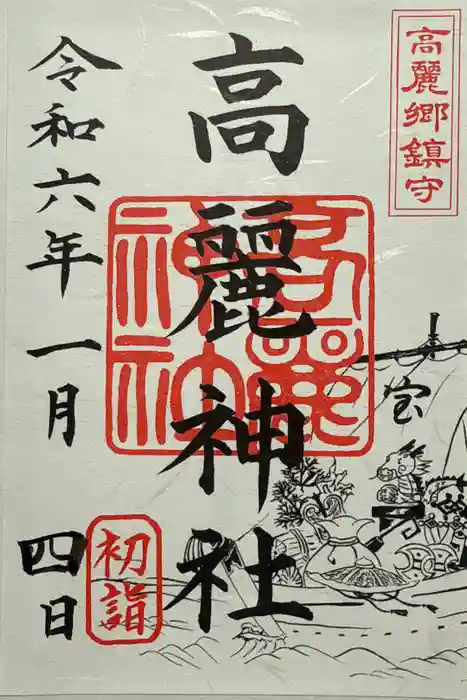 高麗郷鎮守
高麗神社
高麗
神社
宝
令和六年一月四日
初詣